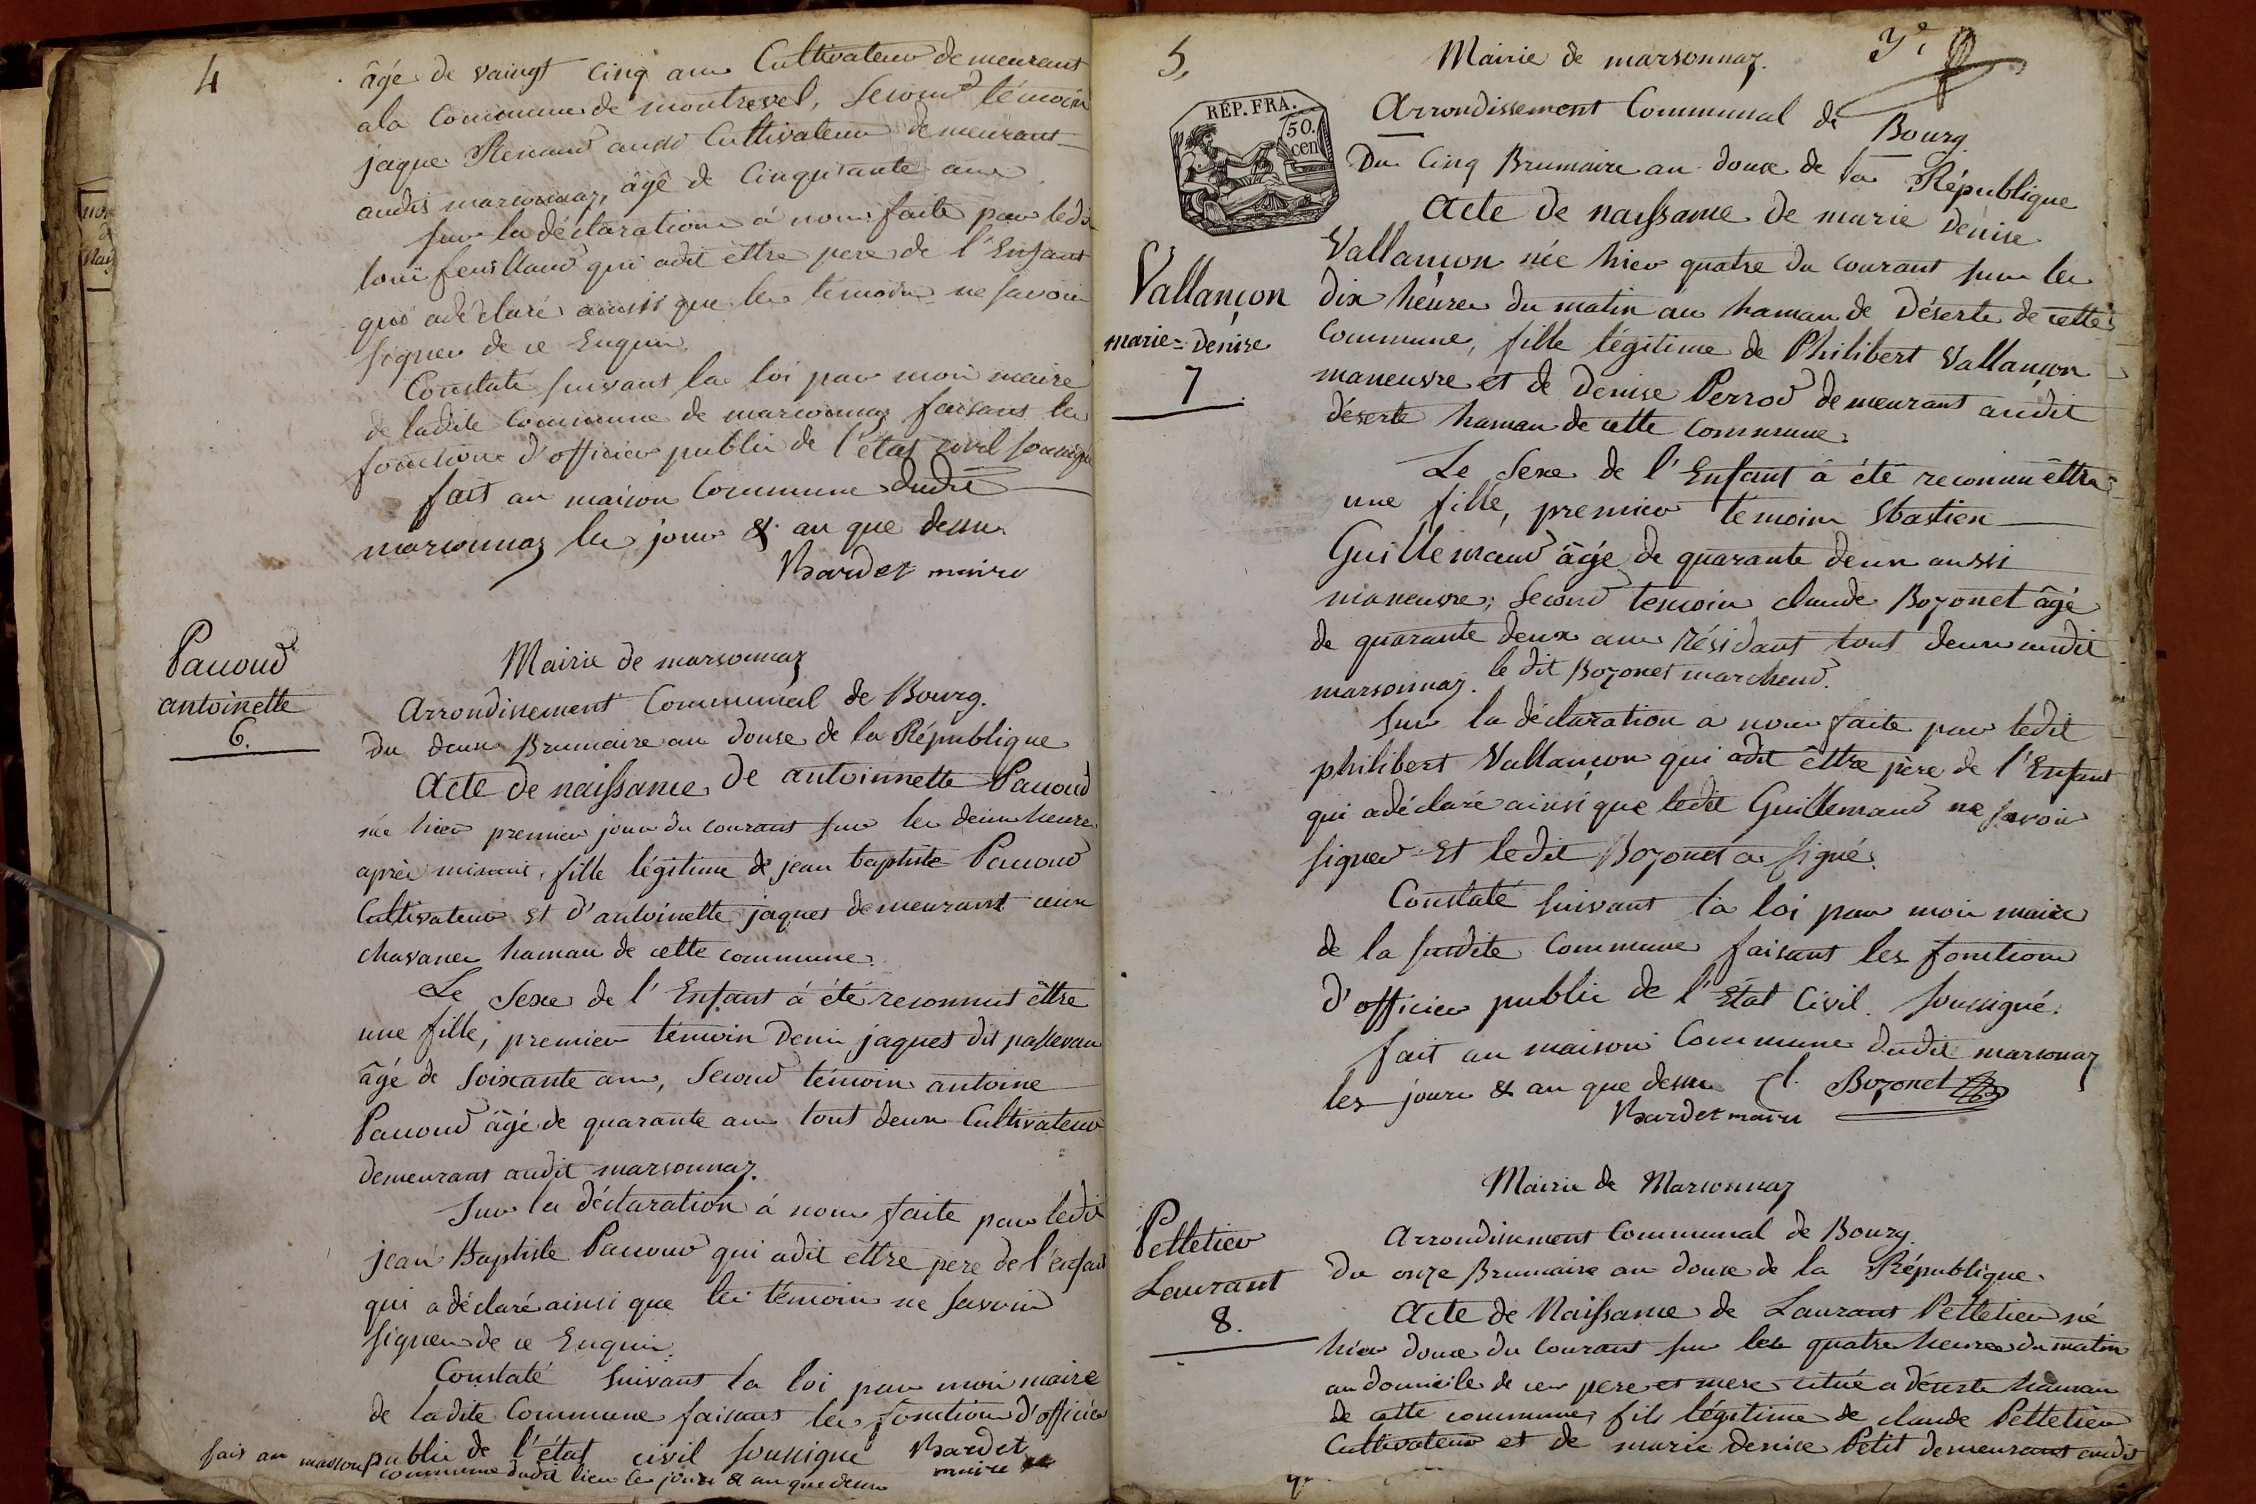 4
âgé de vaingt cinq ans Cultivateur demeurant
a la Commune de montrevel, Second témoin
jaque Renaud audi Cultivateur demeurant
audis marsonnaz, âgé de Cinquante ans
Sur la déclaration à nous faite par ledi
loui feuilland qui adit être pere de l'Enfant
qui a déclaré ainsi que les témoins ne savoir
signer de ce Enquis
Constaté suivant la loi par moi maire
de ladite Commune de marsonnaz faisant les
fonctions d'officier public de l'état civil soussigné
fait au maison Commune dudit
marsonnaz les jour & an que dessus
Bardet maire
Pauoud
antoinette
6.
Mairie de marsonnaz
Arrondissement Communal de Bourg.
Du deux Brumaire an douse de la République
Acte de naissance de antoinnette Pauoud
née hier premier jour du courant sur les deux heures
après minuit, fille légitime de jean baptiste Pauoud
Cultivateur et d'antoinette jaques demeurant aux
chavanes hamau de cette commune.
Le Sexe de l'Enfant à été reconnut être
une fille, premier témoin Denis jaques dit passerau
âgé de soixante ans, Second témoin antoine
Pauoud âgé de quarante ans tout deux Cultivateur
demeurant audit marsonnaz.
Sur la déclaration à nous faite par ledit
jean Baptiste Pauoud qui adit être pere de l'enfant
qui a déclaré ainsi que les témoins ne savoir
signer de ce Enquis.
Constaté suivant la loi par moi maire
de ladite Commune faisant les fonctions d'officier
public de l'état civil soussigné Bardet
maire
fait au maison commune dudit lieu les jours & an que dessus
5,
Mairie de marsonnaz.
RÉP. FRA.
50.
cen
Arrondissement Communal de Bourg
Du Cinq Brumaire an douse de la République
Acte de naissance de marie Denise
Vallançon
marie=Denise
7
Vallançon née hier quatre du courant sur les
dix heures du matin au hamau de Déserte de cette
Commune, fille légitime de Philibert Vallançon
maneuvre et de Denise Perrod demeurant audit
déserte hamau de cette commune.
Le Sexe de l'Enfant à été reconnu être
une fille, premier témoin Sbastien
Guillemaud âgé de quarante deux aussi
maneuvre; Second temoin claude Bozonet âgé
de quarante deux ans résidant tout deux audit
marsonnaz. le dit Bozonet marchand.
Sur la déclaration à nous faite par ledit
philibert Vallançon qui adit être père de l'Enfant
qui adéclaré ainsi que ledit Guillemaud ne savoir
signer Et ledit Bozonet a signé.
Constaté suivant la loi par moi maire
de la susdite Commune faisant les fonctions
d'officier public de l'Etat Civil. soussigné.
fait au maison Commune dudit marsonaz
les jours & an que dessus Cl. Bozonet
Bardet maire
Mairie de Marsonnaz
Pelletier
Laurant
8.
Arrondissement Communal de Bourg.
Du onze Brumaire an douse de la République.
Acte de Naissance de Laurant Pelletier né
hier douse du courant sur les quatre heures du matin
au domicile de ces pere et mere situé a déserte hamau
de cette commune, fils légitime de claude Pelletier
Cultivateur et de marie denise Petit demeurant audit